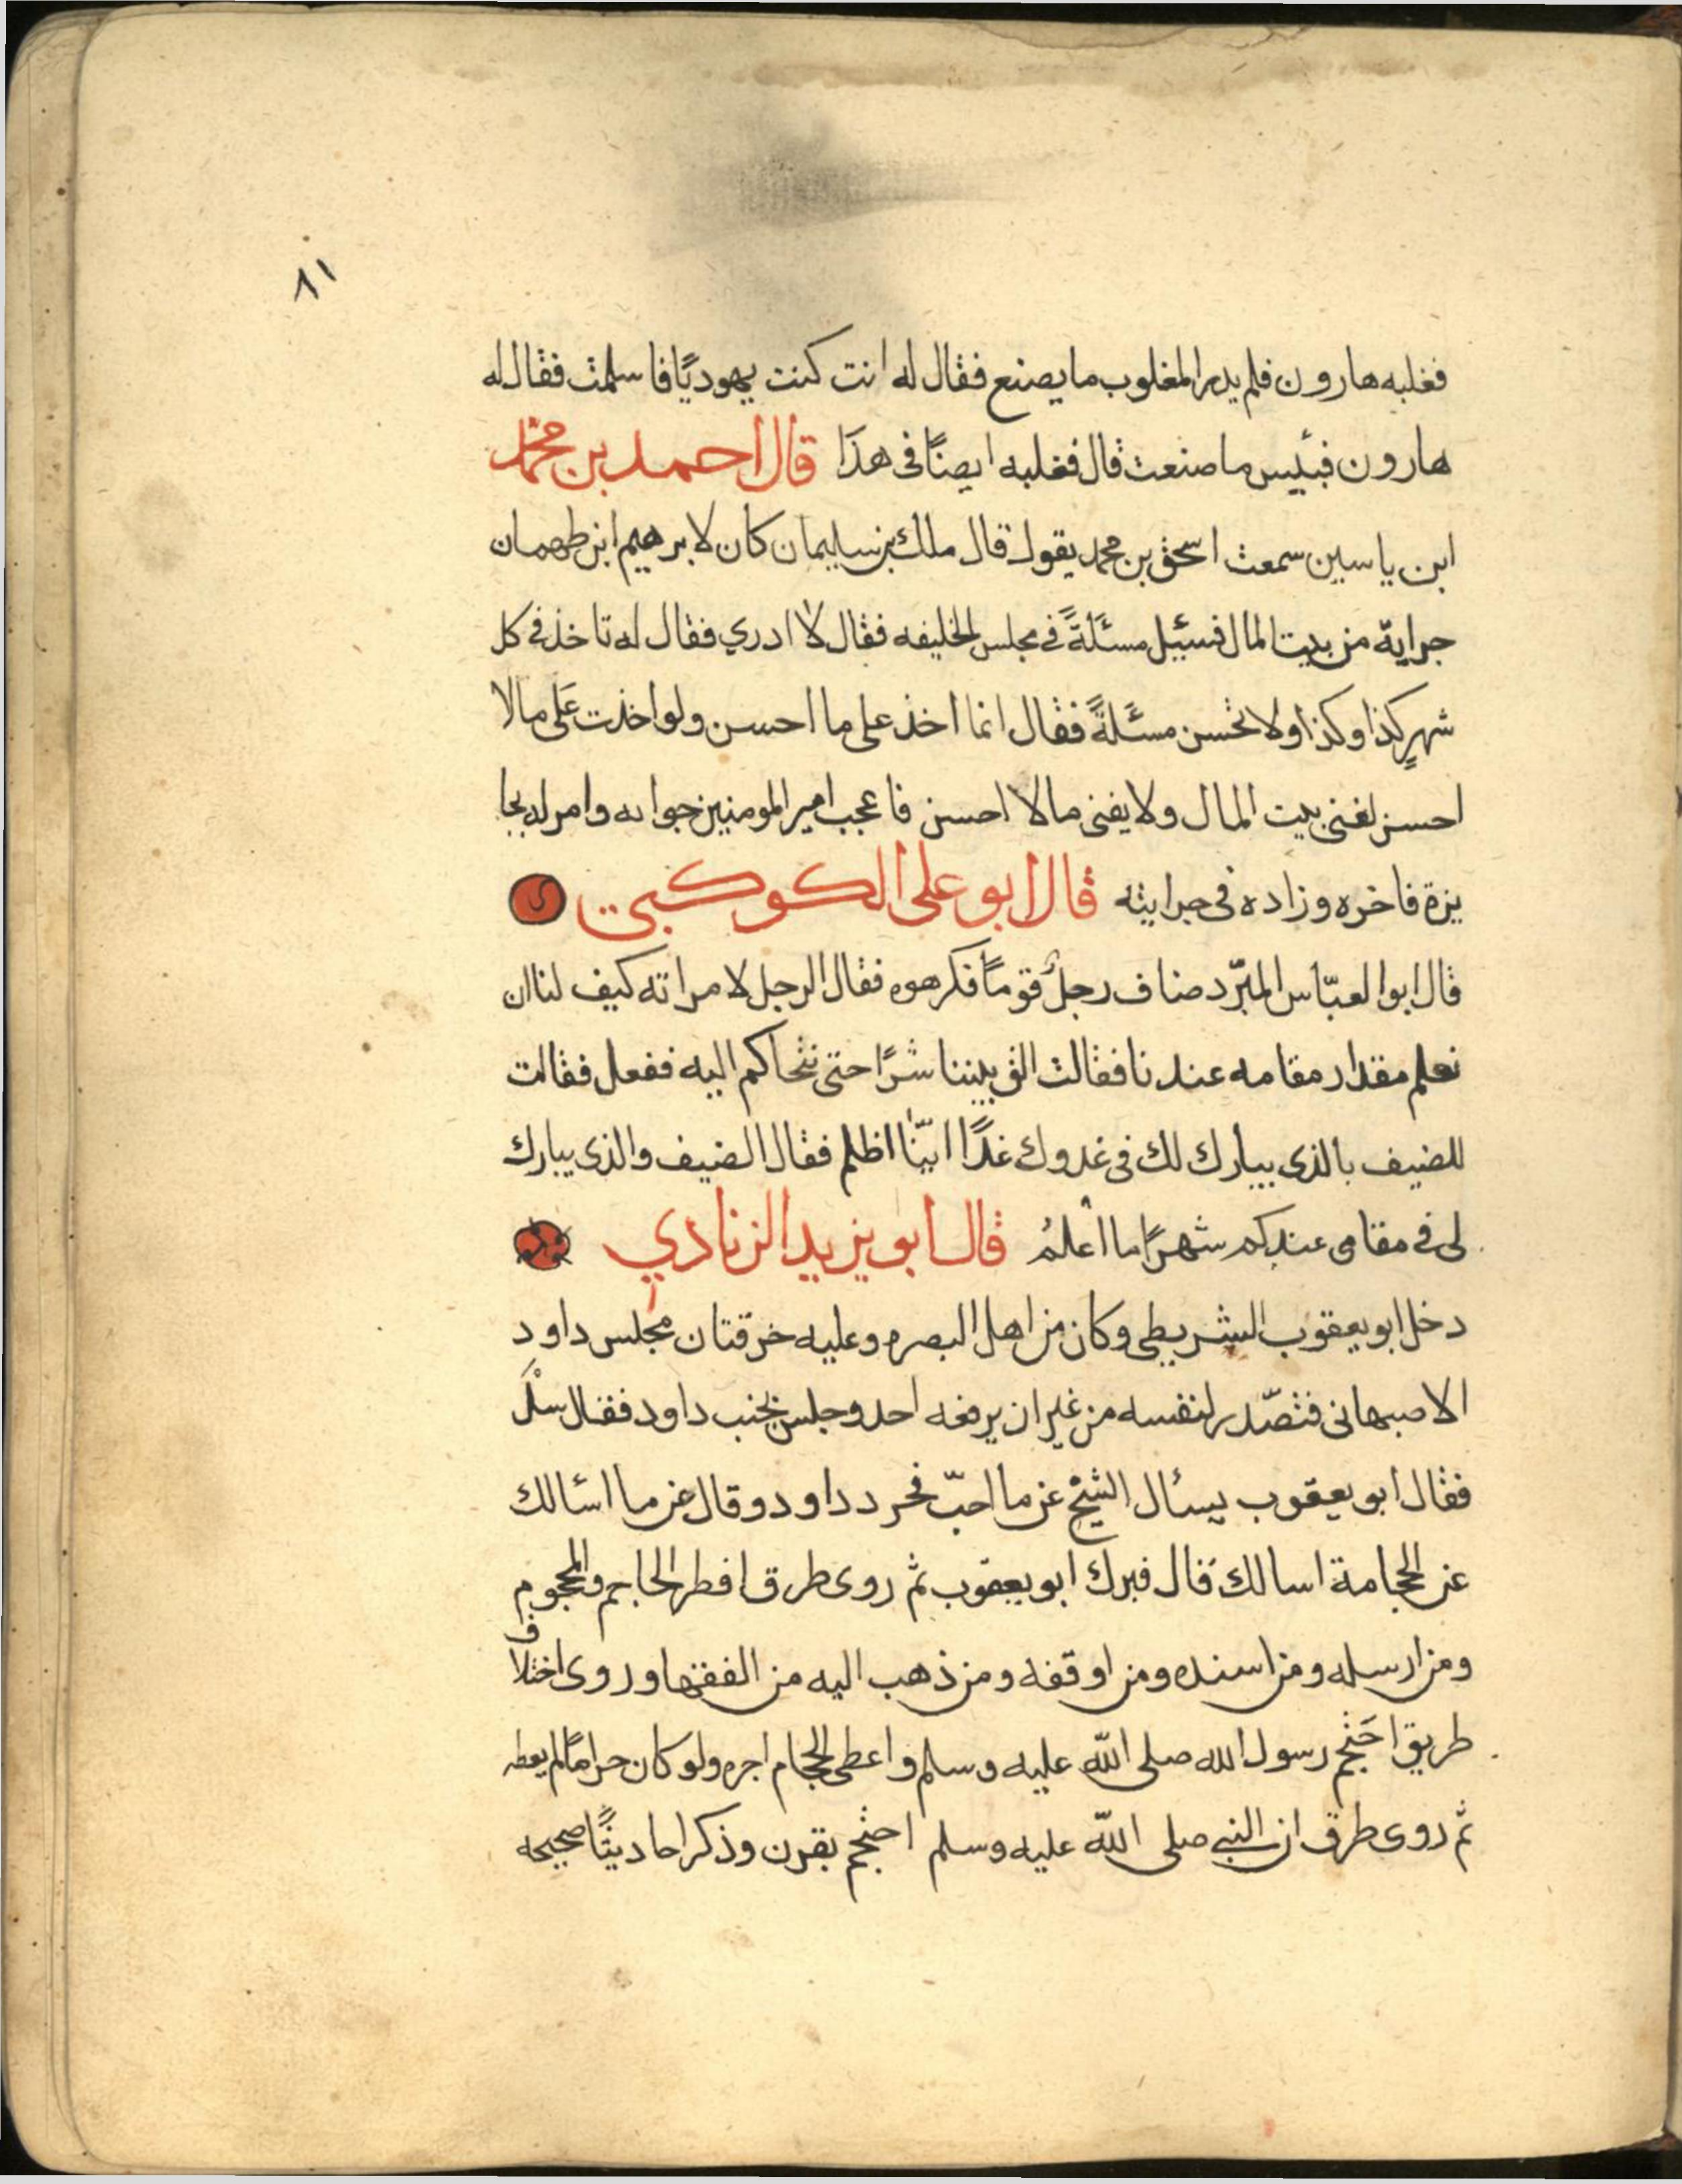 ٨١
فغلبه هارون فلم يدر المغلوب ما يصنع فقال له انت كنت يهوديًا فاسلمت فقال له
هارون فبئيس ما صنعت قال فغلبه ايضًا فى هذا قال احمد بن محمّد
ابن ياسين سمعت اسحق بن محمد يقول قال ملك بن سليمان كان لابرهيم ابن طهمان
جراية من بيت المال فسئيل مسئلةً في مجلس الخليفه فقال لا ادري فقال له تاخذ في كل
شهرٍ كذا وكذا ولا تحسن مسئلةً فقال انما اخذ على ما احسن ولو اخذت على ما لا
احسن لفنى بيت المال ولا يفنى ما لا احسن فاعجب امير المومنين جوابه وامر له بجا
يزة فاخره وزاده فى جرايته قال ابو على الكوكبى
قال ابو العبّاس المبّرد ضاف رجلٌ قومًا فكرهوه فقال الرجل لامراته كيف لنا ان
نعلم مقدار مقامه عندنا فقالت الق بيننا شرًا حتى نتحاكم اليه ففعل فقالت
للضيف بالذى يبارك لك فى غدوك غدًا ايّنا اظلم فقال الضيف والذى يبارك
لى في مقامى عندكم شهرًا ما اعلمُ قال ابو يزيد الزنادي
دخل ابو يعقوب الشريطى وكان من اهل البصره وعليه خرقتان مجلس داود
الاصبهانى فتصّدر لنفسه من غير ان يرفعه احد وجلس بجنب داود فقال سلْ
فقال ابو يعقوب يسأل الشيخ عن ما احبّ فحرد داود وقال عن ما اسالك
عن الحجامة اسالك قال فبرك ابو يعقوب ثم روى طرق افطر الحاجم والمحجوم
ومن ارسله ومن اسنده ومن اوقفه ومن ذهب اليه من الفقها وروى اختلاف
طريق احَتجم رسول الله صلى اللّه عليه وسلم واعطى الحجام اجره ولو كان حرامًا لم يعطه
ثم روى طرق ان النبي صلى اللّه عليه وسلم احتجم بقرن وذكر احاديثًا صحيحه